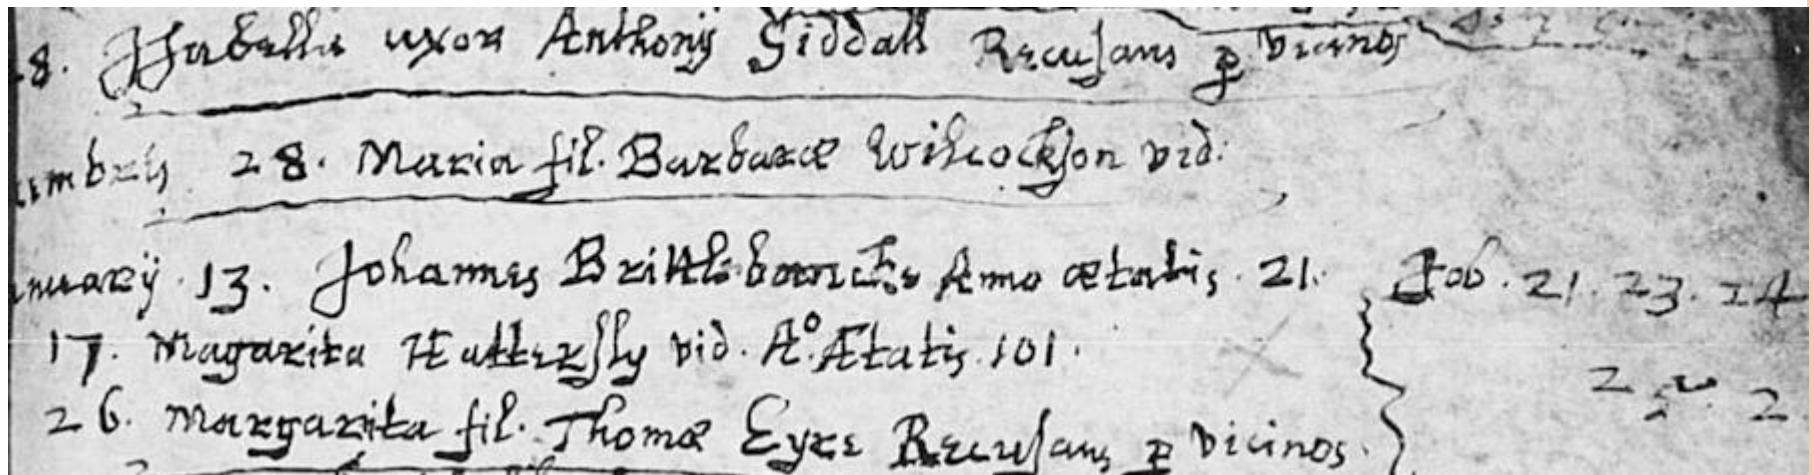 8. Isabella uxor Anthony Siddall Recusans p vicinos
28. Maria fil. Barbaræ Wilcockson vid:
13. Johannes Anno ætatis. 21. Job. 21. 23. 24
17. Magarita Hattersly vid. Aº Ætatis. 101.
26. Margarita fil. Thomæ Eyre Recusans p vicinos.